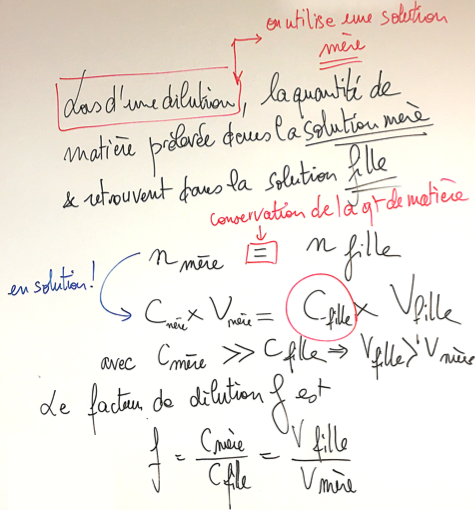 on utilise une solution
mère
Lors d'une dilution, la quantité de
matière prélevée dans la solution mère
se retrouvent dans la solution fille
conservation de la qt de matière
n mère = n fille
en solution!
C mère × V mère = C fille × V fille
avec C mère >> C fille ⇒ V fille > V mère
Le facteur de dilution f est
f = C mère / C fille = V fille / V mère